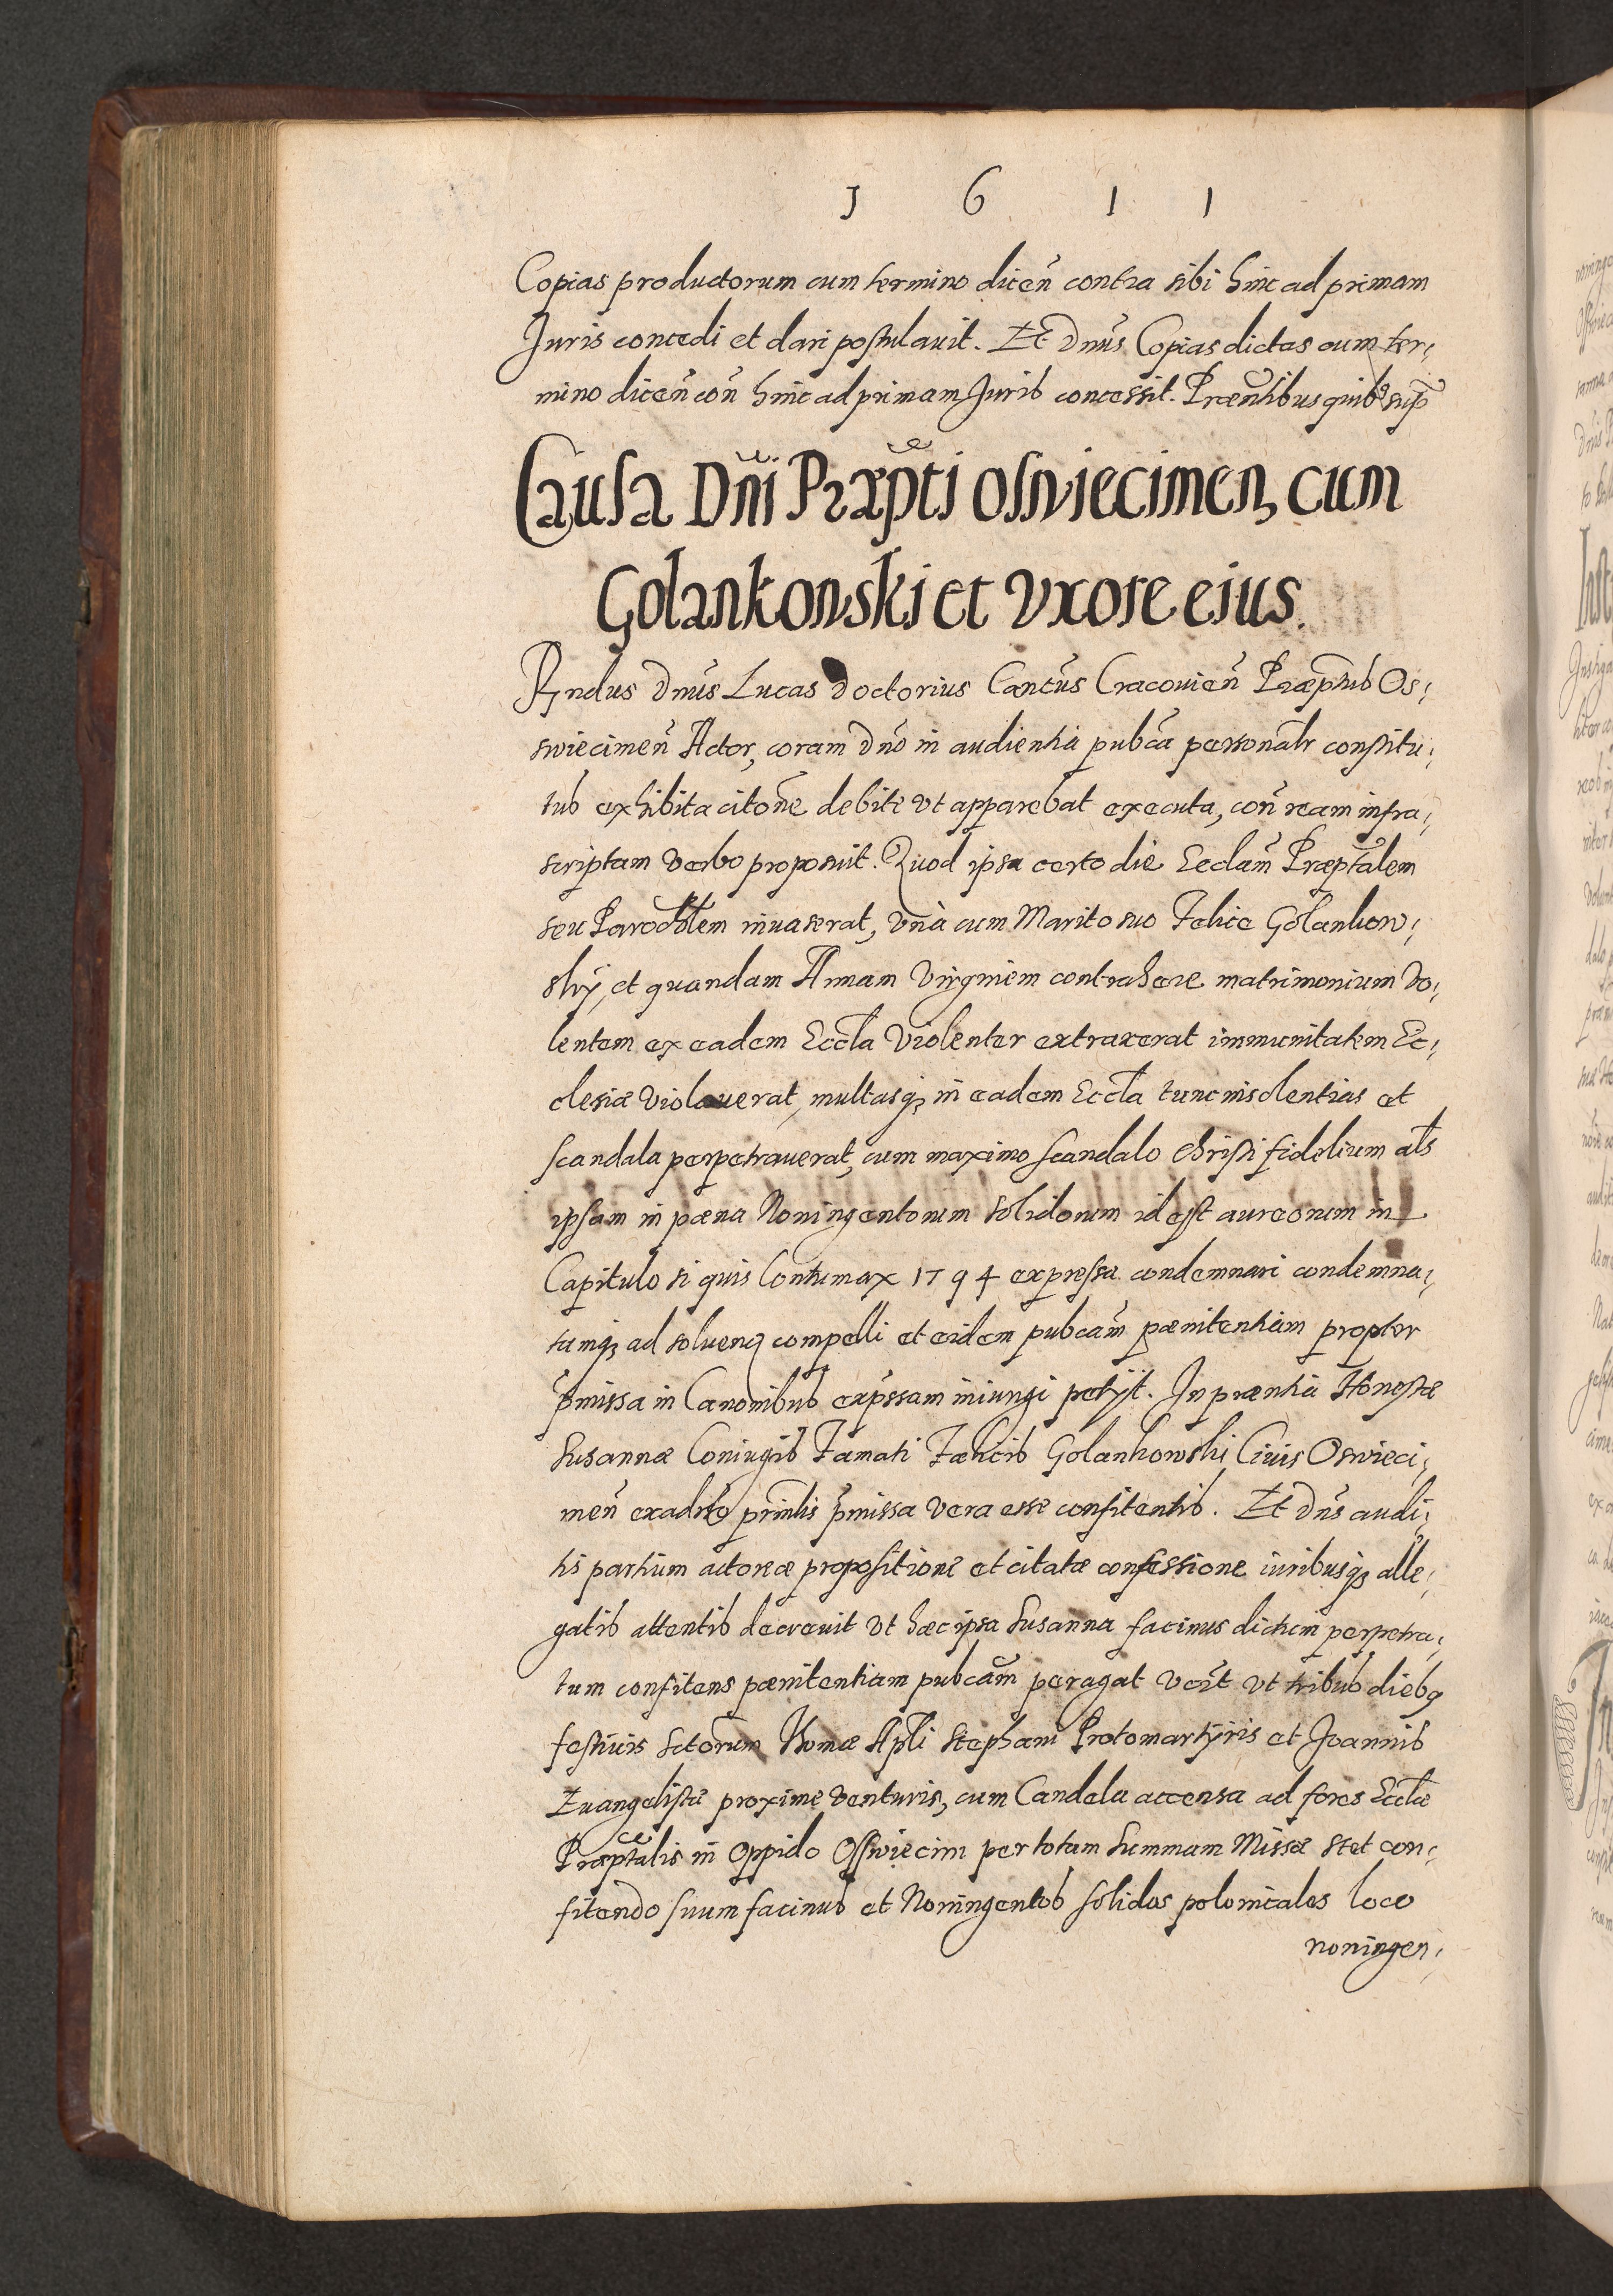 1 6 1 1
Copias productorum cum termino diceñ contra sibi hinc ad primam
Juris concedi et dari postulauit. Et Dnūs Copias dictas cum ter,
mino diceñ coñ hinc ad primam Juris concessit. Præntibus quib9 supᷓ
Causa Dñi Præpti Osswiecimen, cum
Golankowski et Vxore eius.
Rndus Dnūs Lucas Doctorius Cantūs Cracouieñ Præptus Os,
swiecimeñ Actor, coram Dnō in audientia pubca personalr constitu,
tus exhibita citoñe debite vt apparebat executa, coñ ream infra,
scriptam verbo proposuit. Quod ipsa certo die Ecclam̃ Præptalem
seu Parochlem inuaserat, vnà cum Marito suo Felice Golankow,
skÿ, et quandam Annam Virginem contrahere matrimonium vo,
lentem ex eadem Eccla violenter extraxerat immunitatem Ec,
clesiæ violauerat, multasqȝ in eadem Eccla tunc insolentias et
scandala perpetrauerat, cum maximo scandalo Christi fidelium als
ipsam in pœna Noningentorum solidorum id est aureorum in
Capitulo si quis Contumax 17 9 4 expressa condemnari condemna,
tamqȝ ad soluenᷓ compelli et eidem pubcam̃ pœnitentiam propter
p̃missa in Canonibus exp̃ssam iniungi petijt. In præntia Honestæ
Susannæ Coniugis Famati Fælicis Golankowski Ciuis Oswieci,
meñ ex aduo prinlis p̃missa vera esse confitentis. Et Dñs audi,
tis partium actoreæ propositione et citatæ confessione iuribusqȝ alle,
gatis attentis decreuit vt hæc ipsa Susanna facinus dictum perpetra,
tum confitens pœnitentiam pubcam̃ peragat vcꝫt vt tribus dieb9
festiuis sctorum Thomæ Apli Stephani Protomartÿris et Joannis
Euangelistæ proxime venturis, cum Candela accensa ad fores Ecclæ
Præptalis in Oppido Osswiecim per totam Summam Missæ stet con,
fitendo suum facinus et Noningentos solidos polonicales loco
noningen,